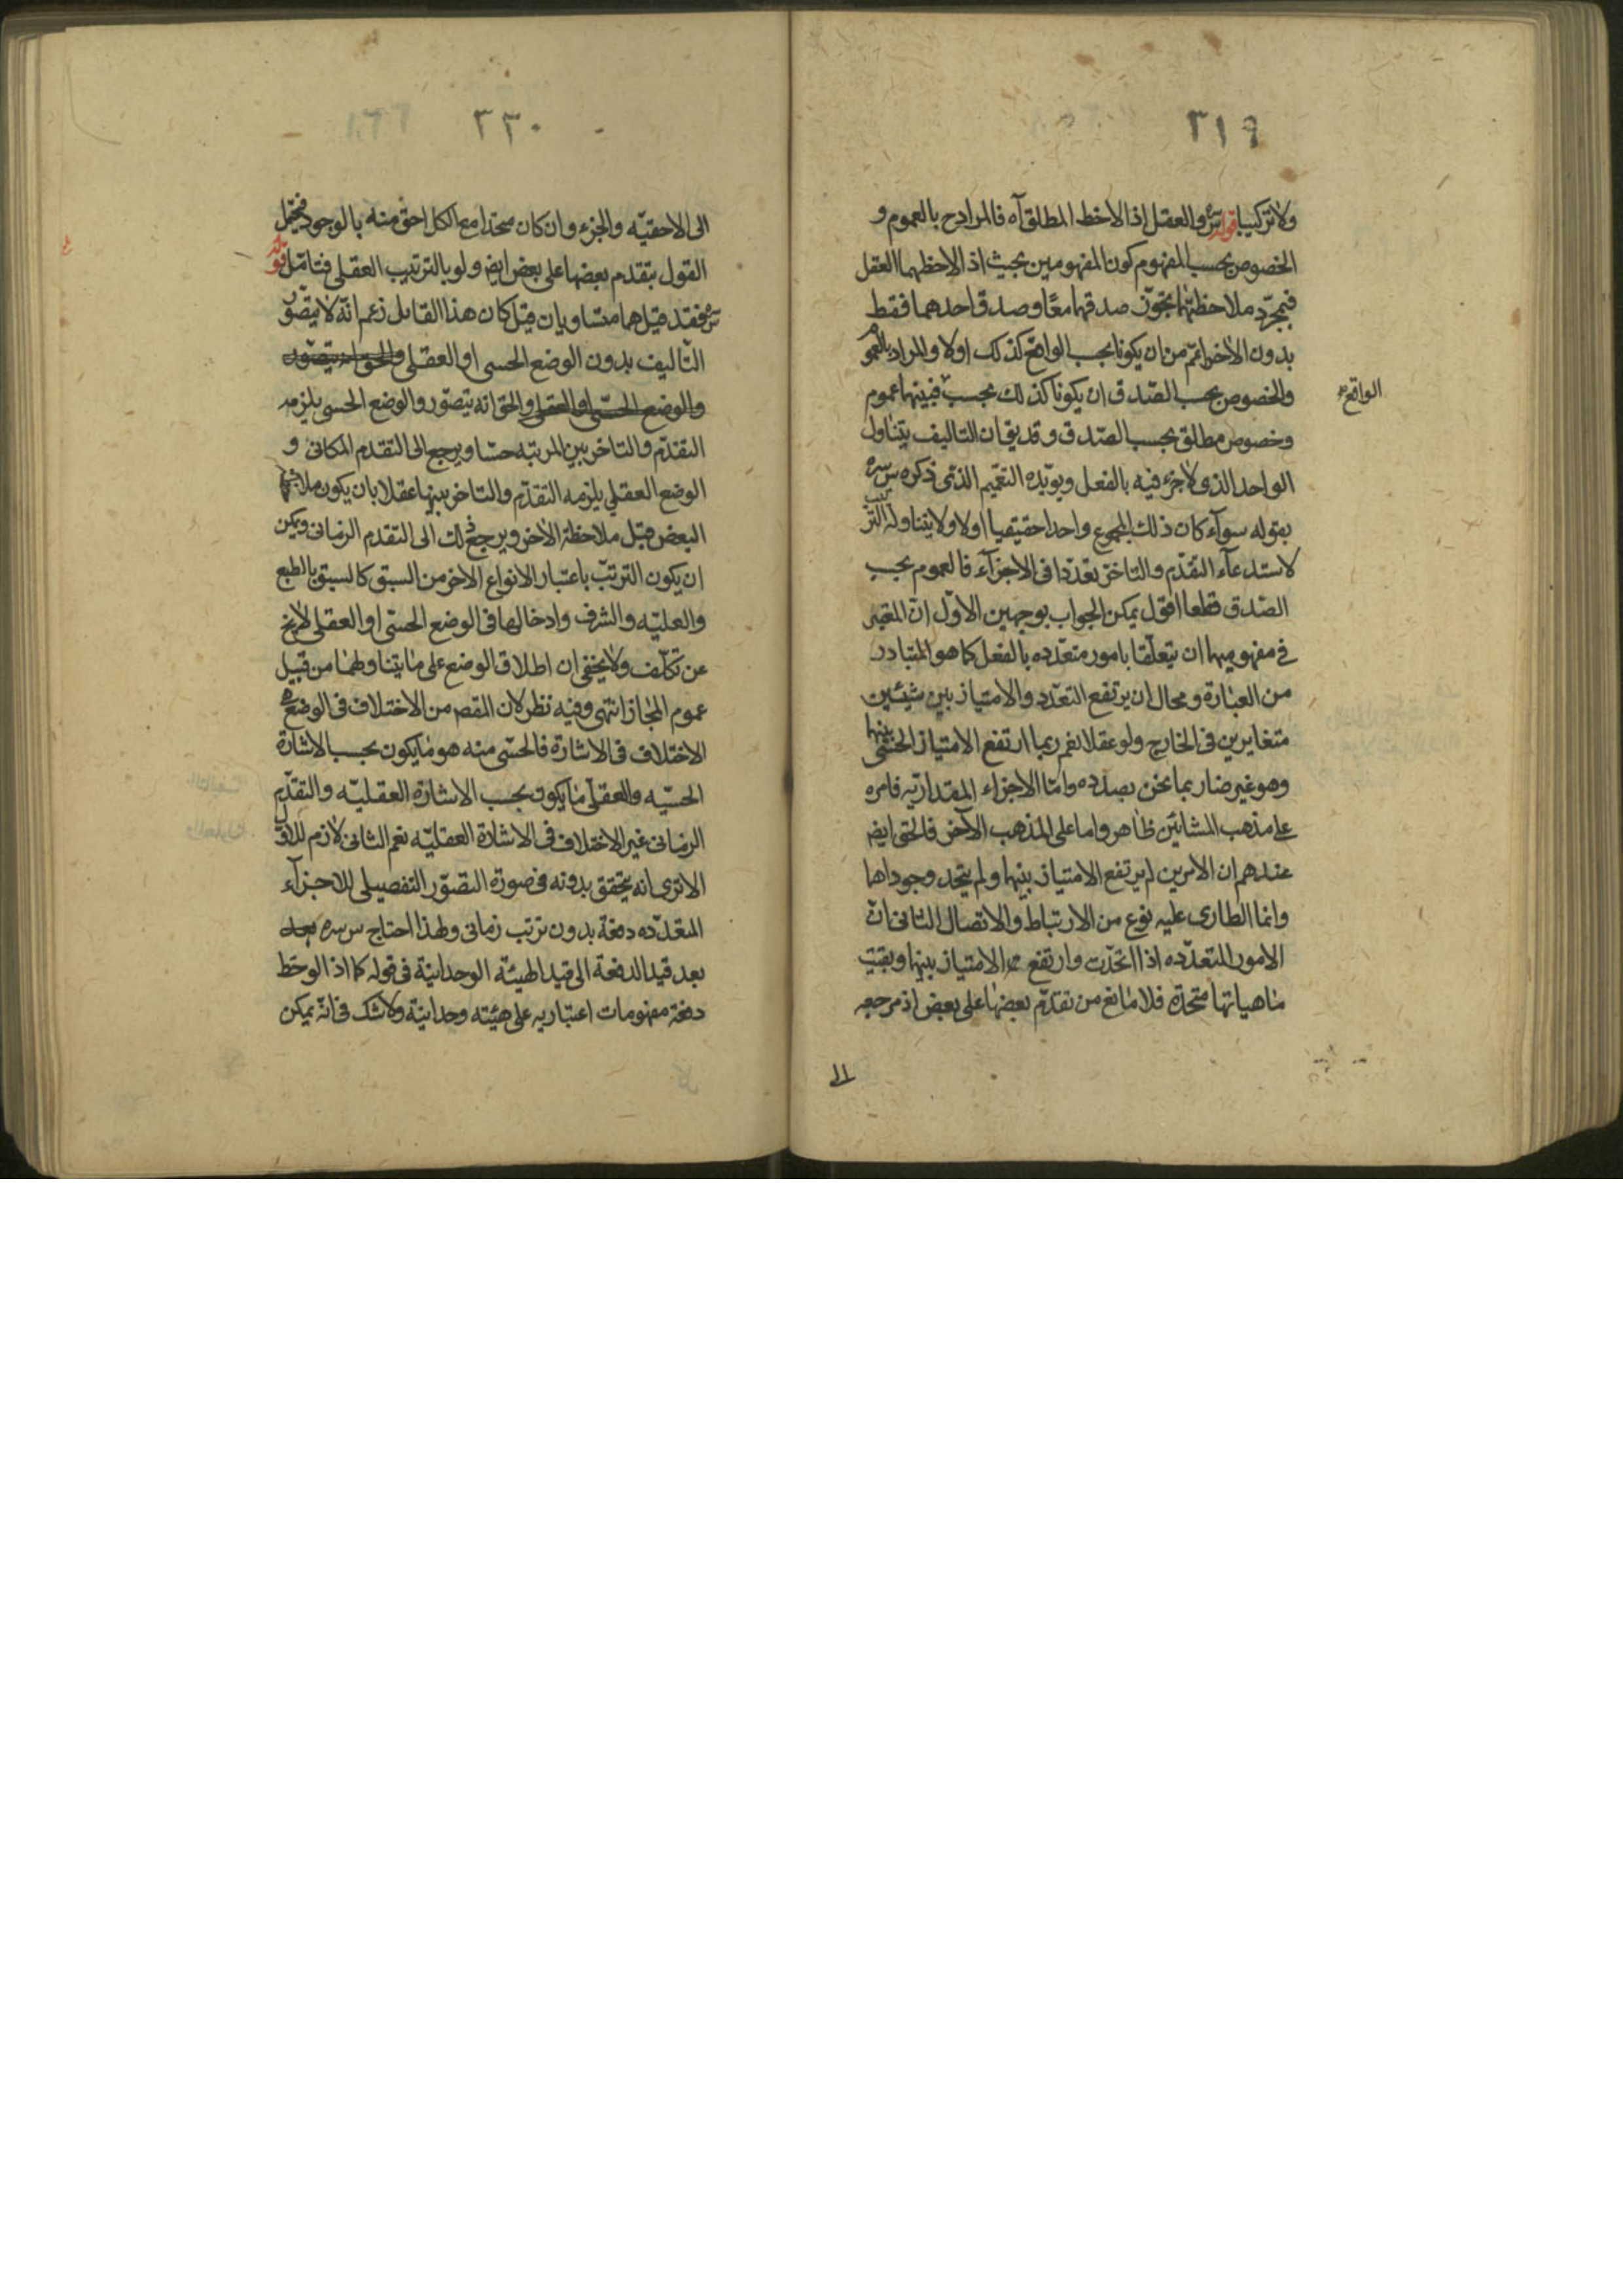 ٣١٩
ولا تركيبا قوله س سره والعقل اذا لاحظ المطلق آه فالمراد ح بالعموم و
الخصوص بحسب المفهوم كون المفهومين بحيث اذا لاحظهما العقل
فبمجرد ملاحظتهما يجوّز صدقهما معًا وصدق احدهما فقط
بدون الاخر اعمّ من ان يكونا بحسب الواقع كذلك اولا والمراد بالعموم
والخصوص بحسب الصّدق ان يكونا كذلك بحسب فبينهما عموم
الواقع
وخصوص مطلق بحسب الصّدق وقد يق ان التاليف يتناول
الواحد الذى لا جزء فيه بالفعل ويويّده التعميم الذى ذكره س سره
بقوله سوآء كان ذلك المجموع واحدا حقيقيا اولا ولا يتناوله الترتيب
لاستدعآء التقدّم والتاخر تعدّدا فى الاجزآء فالعموم بحسب
الصّدق قطعا اقول يمكن الجواب بوجهين الاوّل انّ المعتبر
فى مفهوميهما ان يتعلّقا بامور متعدّده بالفعل كما هو المتبادر
من العبارة ومحال ان يرتفع التعدّد والامتياز بين شيئين
متغايرين فى الخارج ولو عقلا نعم ربما ارتفع الامتياز الحسّى بينهما
وهو غير ضار بما نحن بصدده وامّا الاجزاء المقداريّه فامره
على مذهب المشائين ظاهر واما على المذهب الآخر فالحق ايض
عندهم ان الامرين لم يرتفع الامتياز بينهما ولم يتحد وجوداها
وانما الطارى عليه نوع من الارتباط والاتصال الثانى انّ
الامور المتعدّده اذا اتحدّت وارتفع الامتياز بينها وبقيت
ماهياتها متحدّة فلا مانع من تقدّم بعضها على بعض اذ مرجعه
الى
٣٣٠
الى الاحقيّه والجزء وان كان متحدا مع الكل احق منه بالوجود فيحتمل
القول بتقدم بعضها على بعض ايض ولو بالترتيب العقلى فتامّل قوله
س سره فقد قيل هما متساويان قيل كان هذا القايل زعم انّه لا يتصّور
التّاليف بدون الوضع الحسى او العقلى والحق انه يتصّور
والوضع الحسّى او العقلى والحق انه يتصّور والوضع الحسى يلزمه
التقدّم والتاخر بين المرتبه حسّا ويرجع الى التقدم المكانى و
الوضع العقلي يلزمه التقدّم والتاخر بينها عقلا بان يكون ملاحظة
البعض قبل ملاحظة الاخر ويرجع ذلك الى التقدم الزمانى ويمكن
ان يكون الترتّب باعتبار الانواع الاخر من السبق كالسبق بالطبع
والعليّه والشرف وادخالها فى الوضع الحسّى او العقلى لا يخ
عن تكلّف ولا يخفى ان اطلاق الوضع على ما يتناولهما من قبيل
عموم المجاز انتهى وفيه نظر لان المقص من الاختلاف فى الوضع
الاختلاف فى الاشارة فالحسّى منه هو ما يكون بحسب الاشارة
الحسيّه والعقلّى ما يكون بحسب الاشارة العقليّه والتقدّم
الزمانى غير الاختلاف فى الاشارة العقليّه نعم الثانى لازم للاوّل
الا ترى انه يتحقق بدونه فى صورة التصّور التفصيلى للاجزآء
المتعدّده دفعة بدون ترتب زمانى ولهذا احتاج س سره
بعد قيد الدفعة الى قيد الهيئة الوحدانية فى قوله كما اذا لوحظ
دفعة مفهومات اعتباريه على هيئته وحدانيّة ولا شك فى انّه يمكن